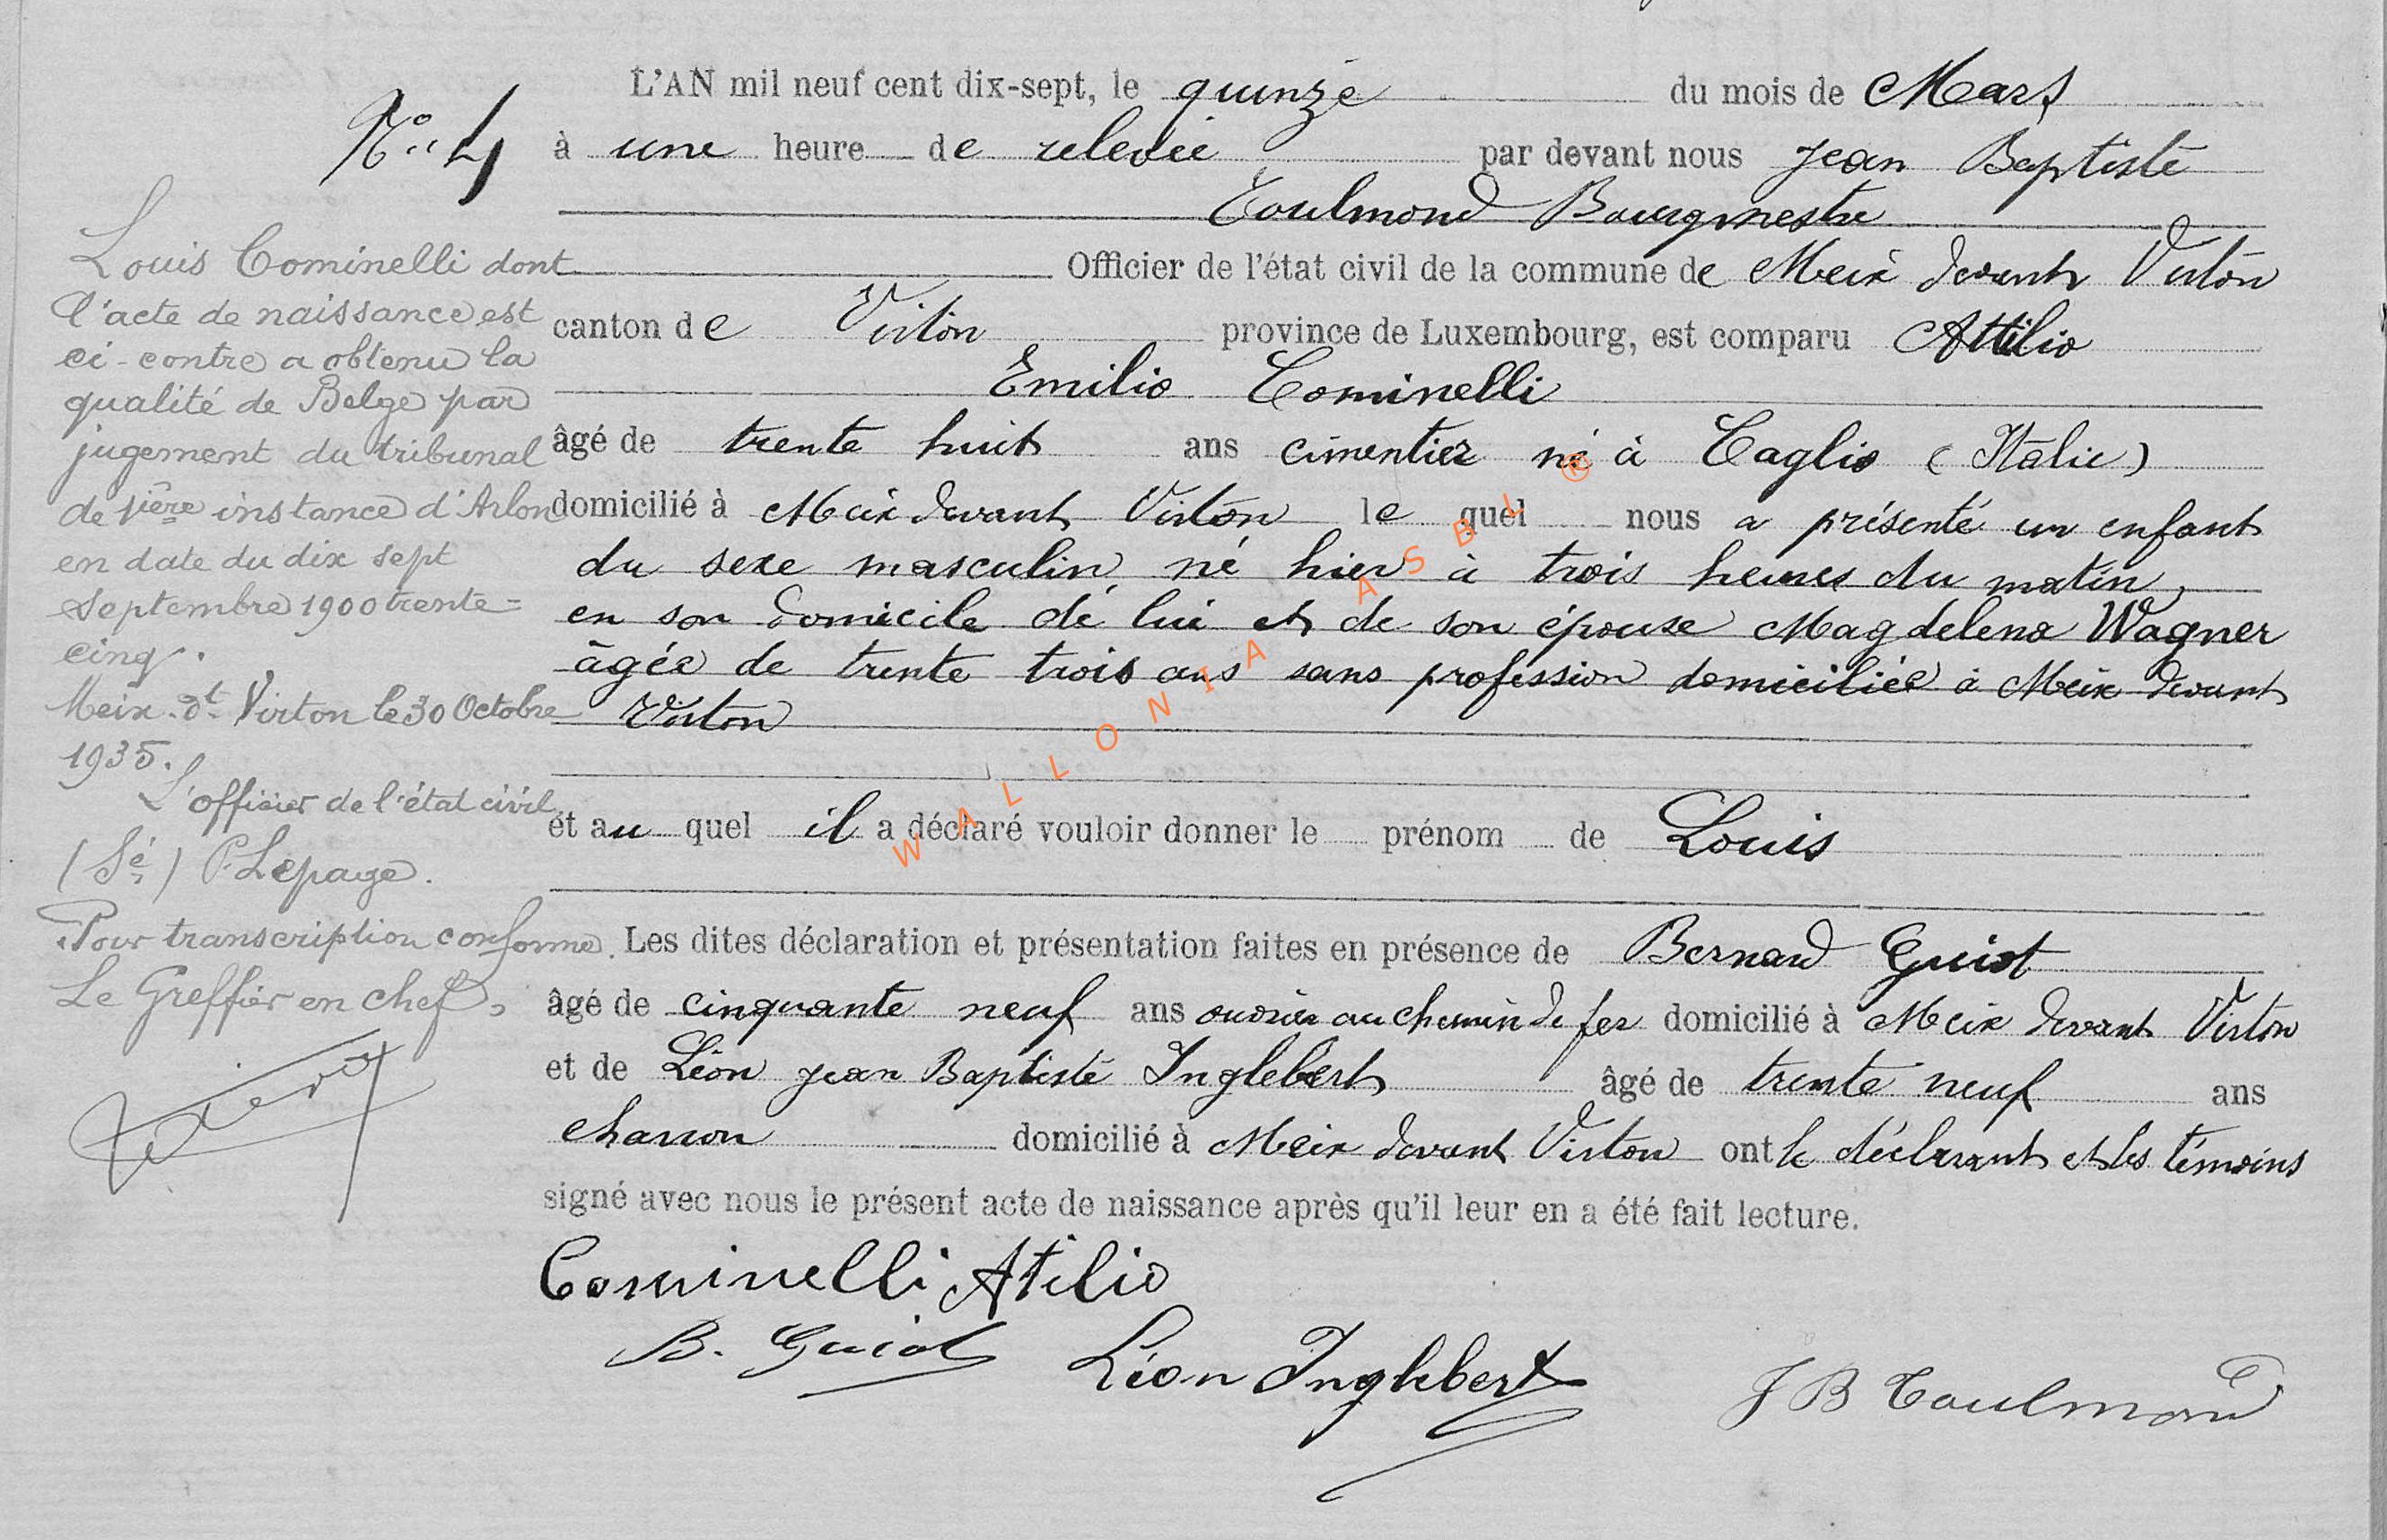 L'AN mil neuf cent dix-sept, le quinze du mois de Mars
N° 4
à une heure de relevée par devant nous Jean Baptiste
Toulmond Bourgmestre
Officier de l'état civil de la commune de Meix devant Virton
canton de Virton province de Luxembourg, est comparu Attilio
Emilio Cominelli
âgé de trente huit ans cimentier né à Caglio (Italie)
domicilié à Meix devant Virton le quel nous a présenté un enfant
du sexe masculin, né hier à trois heures du matin,
en son domicile de lui et de son épouse Magdelena Wagner
âgée de trente trois ans sans profession domiciliée à Meix devant
Virton
et au quel il a déclaré vouloir donner le prénom de Louis
Les dites déclaration et présentation faites en présence de Bernard Guiot
âgé de cinquante neuf ans ouvrier au chemin de fer domicilié à Meix devant Virton
et de Léon Jean Baptiste Inglebert âgé de trente neuf ans
charron domicilié à Meix devant Virton ont le déclarant et les témoins
signé avec nous le présent acte de naissance après qu'il leur en a été fait lecture.
Cominelli Atilio
B. Guiot Léon Inglebert J B Toulmond
Louis Cominelli dont
l'acte de naissance est
ci-contre a obtenu la
qualité de Belge par
jugement du tribunal
de 1ère instance d'Arlon
en date du dix sept
Septembre 1900 trente=
cinq.
Meix-dt-Virton le 30 Octobre
1935.
L'officier de l'état civil
(Sé) P. Lepage.
Pour transcription conforme.
Le Greffier en chef,
WALLONIA ASBL ®